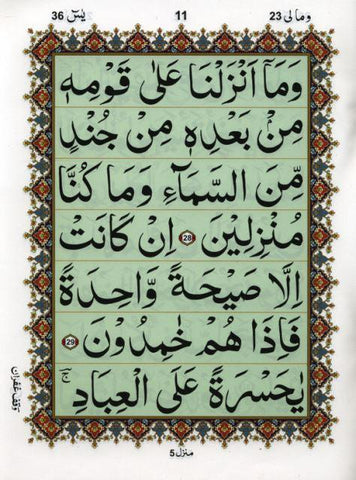 یٰسٓ 36
11
ومالی 23
وَمَآ اَنْزَلْنَا عَلٰى قَوْمِهٖ
مِنْۢ بَعْدِهٖ مِنْ جُنْدٍ
مِّنَ السَّمَآءِ وَمَا كُنَّا
مُنْزِلِيْنَ 28 اِنْ كَانَتْ
اِلَّا صَيْحَةً وَّاحِدَةً
فَاِذَا هُمْ خٰمِدُوْنَ 29
يٰحَسْرَةً عَلَى الْعِبَادِ ۚ
وقف غفران
منزل 5